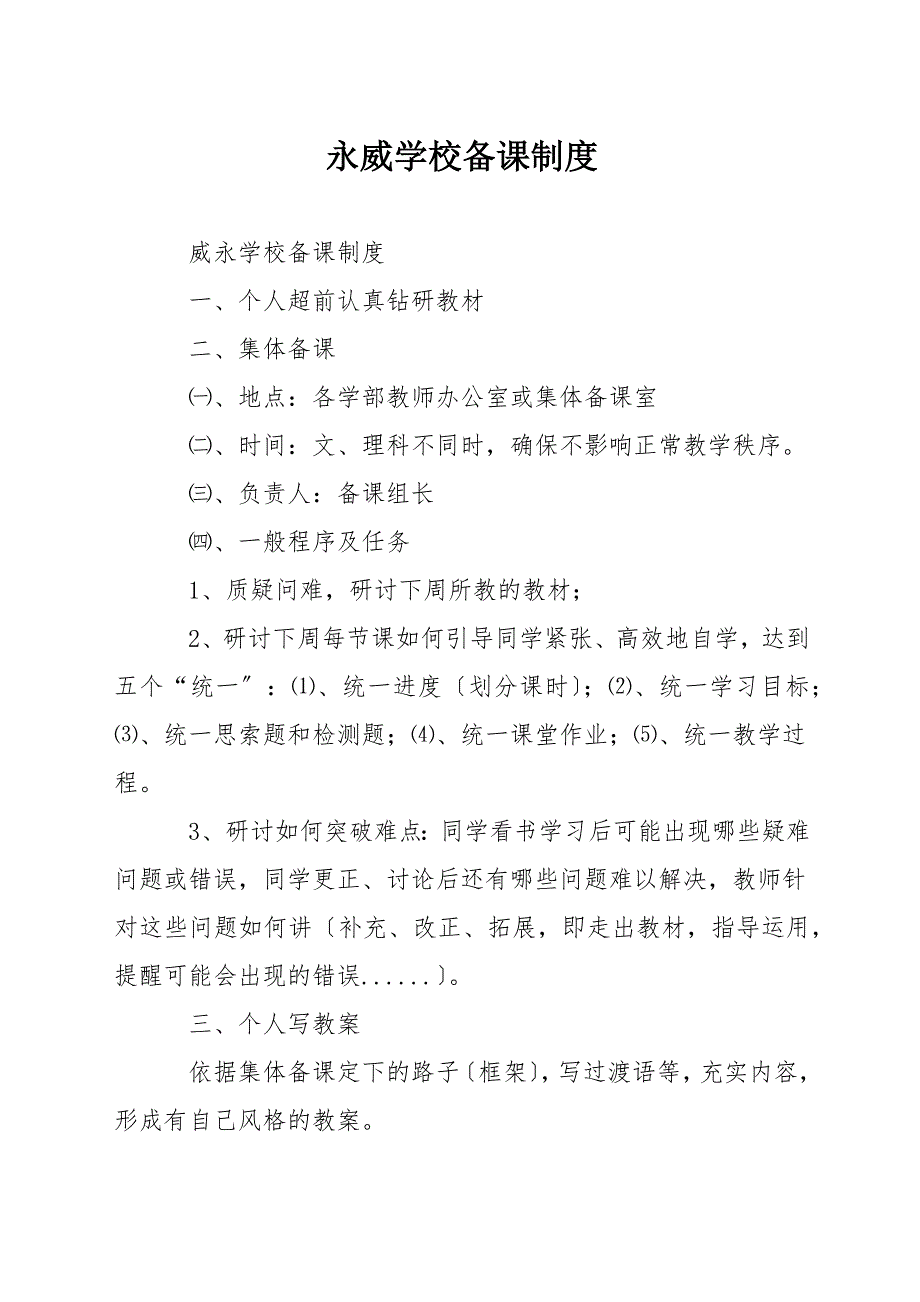 永威学校备课制度
威永学校备课制度
一、个人超前认真钻研教材
二、集体备课
㈠、地点：各学部教师办公室或集体备课室
㈡、时间：文、理科不同时，确保不影响正常教学秩序。
㈢、负责人：备课组长
㈣、一般程序及任务
1、质疑问难，研讨下周所教的教材；
2、研讨下周每节课如何引导同学紧张、高效地自学，达到
五个“统一〞：⑴、统一进度〔划分课时〕；⑵、统一学习目标；
⑶、统一思索题和检测题；⑷、统一课堂作业；⑸、统一教学过
程。
3、研讨如何突破难点：同学看书学习后可能出现哪些疑难
问题或错误，同学更正、讨论后还有哪些问题难以解决，教师针
对这些问题如何讲〔补充、改正、拓展，即走出教材，指导运用，
提醒可能会出现的错误......〕。
三、个人写教案
依据集体备课定下的路子〔框架〕，写过渡语等，充实内容，
形成有自己风格的教案。